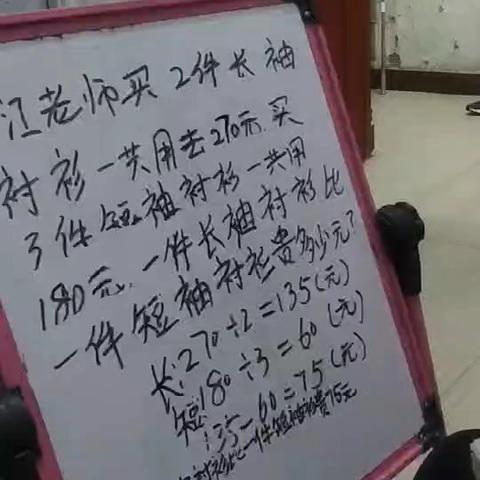 江老师买2件长袖
衬衫一共用去270元.买
3件短袖衬衫一共用
180元.一件长袖衬衫比
一件短袖衬衫贵多少元?
长:270÷2=135(元)
短:180÷3=60(元)
135-60=75(元)
衬衫比一件短袖衬衫贵75元